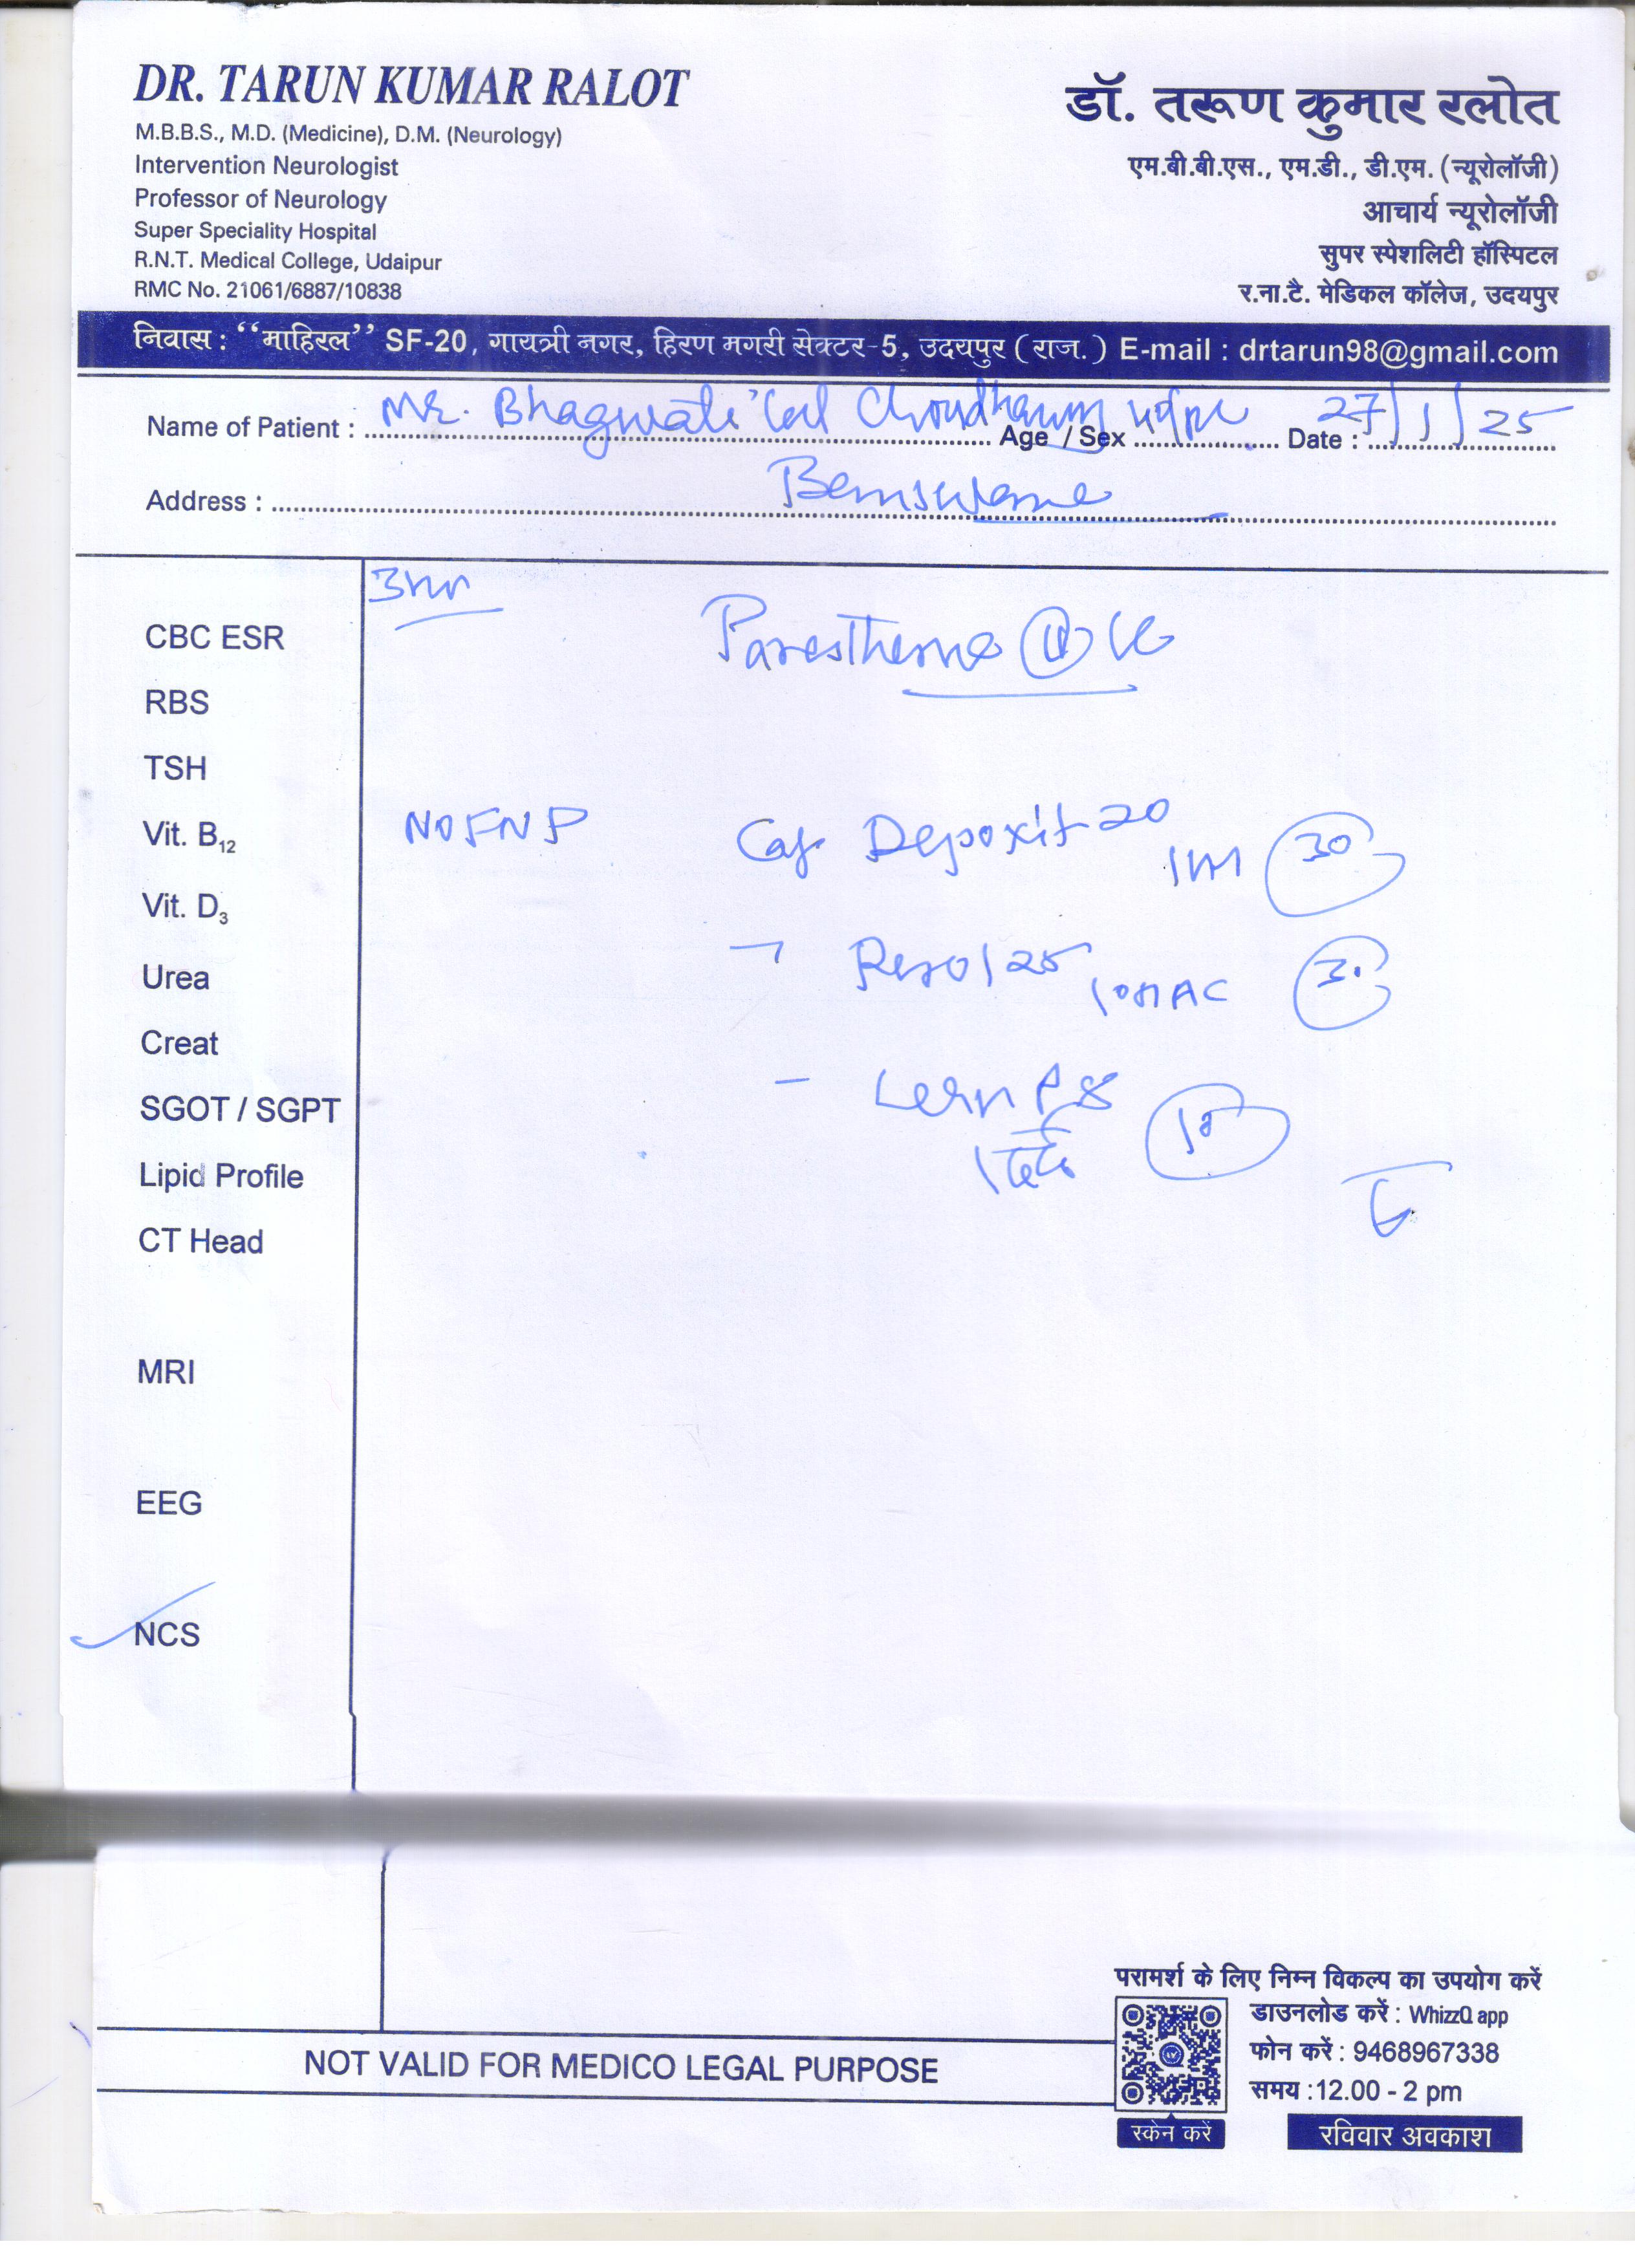 DR. TARUN KUMAR RALOT
M.B.B.S., M.D. (Medicine), D.M. (Neurology)
Intervention Neurologist
Professor of Neurology
Super Speciality Hospital
R.N.T. Medical College, Udaipur
RMC No. 21061/6887/10838
डॉ. तरूण कुमार रलोत
एम.बी.बी.एस., एम.डी., डी.एम. (न्यूरोलॉजी)
आचार्य न्यूरोलॉजी
सुपर स्पेशलिटी हॉस्पिटल
र.ना.टै. मेडिकल कॉलेज, उदयपुर
निवास : “माहिरल” SF-20, गायत्री नगर, हिरण मगरी सेक्टर-5, उदयपुर (राज.) E-mail : drtarun98@gmail.com
Name of Patient : Mr. Bhagwati lal Choudhary Age / Sex Date : 27/1/25
Address :
CBC ESR
RBS
TSH
Vit. B12
Vit. D3
Urea
Creat
SGOT / SGPT
Lipid Profile
CT Head
MRI
EEG
NCS
NOFND
Cap Depoxit 20
30
25
दर्द
NOT VALID FOR MEDICO LEGAL PURPOSE
परामर्श के लिए निम्न विकल्प का उपयोग करें
डाउनलोड करें : WhizzQ app
फोन करें : 9468967338
समय :12.00 - 2 pm
स्केन करें
रविवार अवकाश